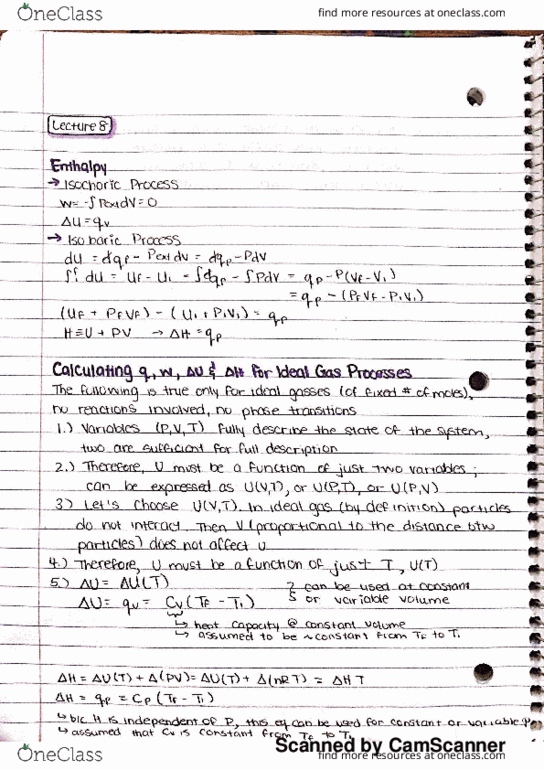 OneClass
find more resources at oneclass.com
Lecture 8
Enthalpy
→ Isochoric Process
w = -∫PextdV = 0
ΔU = qv
→ Isobaric Process
dU = đqp - Pext dV = đqp - PdV
∫ᵢᶠ dU = UF - Ui = ∫đqp - ∫PdV = qp - P(VF - Vi)
= qp - (PFVF - PiVi)
(UF + PFVF) - (Ui + PiVi) = qp
H ≡ U + PV → ΔH = qp
Calculating q, w, ΔU & ΔH for Ideal Gas Processes
The following is true only for ideal gasses (of fixed # of moles),
no reactions involved, no phase transitions
1.) Variables (P,V,T) fully describe the state of the system,
two are sufficient for full description
2.) Therefore, U must be a function of just two variables;
can be expressed as U(V,T), or U(P,T), or U(P,V)
3) Let's choose U(V,T). In ideal gas (by definition) particles
do not interact. Then V (proportional to the distance btw
particles) does not affect U
4.) Therefore, U must be a function of just T, U(T)
5.) ΔU = ΔU(T)
ΔU = qv = Cv (TF - Ti)
can be used at constant
or variable volume
↳ heat capacity @ constant volume
↳ assumed to be ~constant from TF to Ti
ΔH = ΔU(T) + Δ(PV) = ΔU(T) + Δ(nRT) = ΔHT
ΔH = qp = Cp (TF - Ti)
↳ b/c H is independent of P, this eq can be used for constant or variable P
↳ assumed that Cv is constant from TF to Ti
Scanned by CamScanner
OneClass
find more resources at oneclass.com